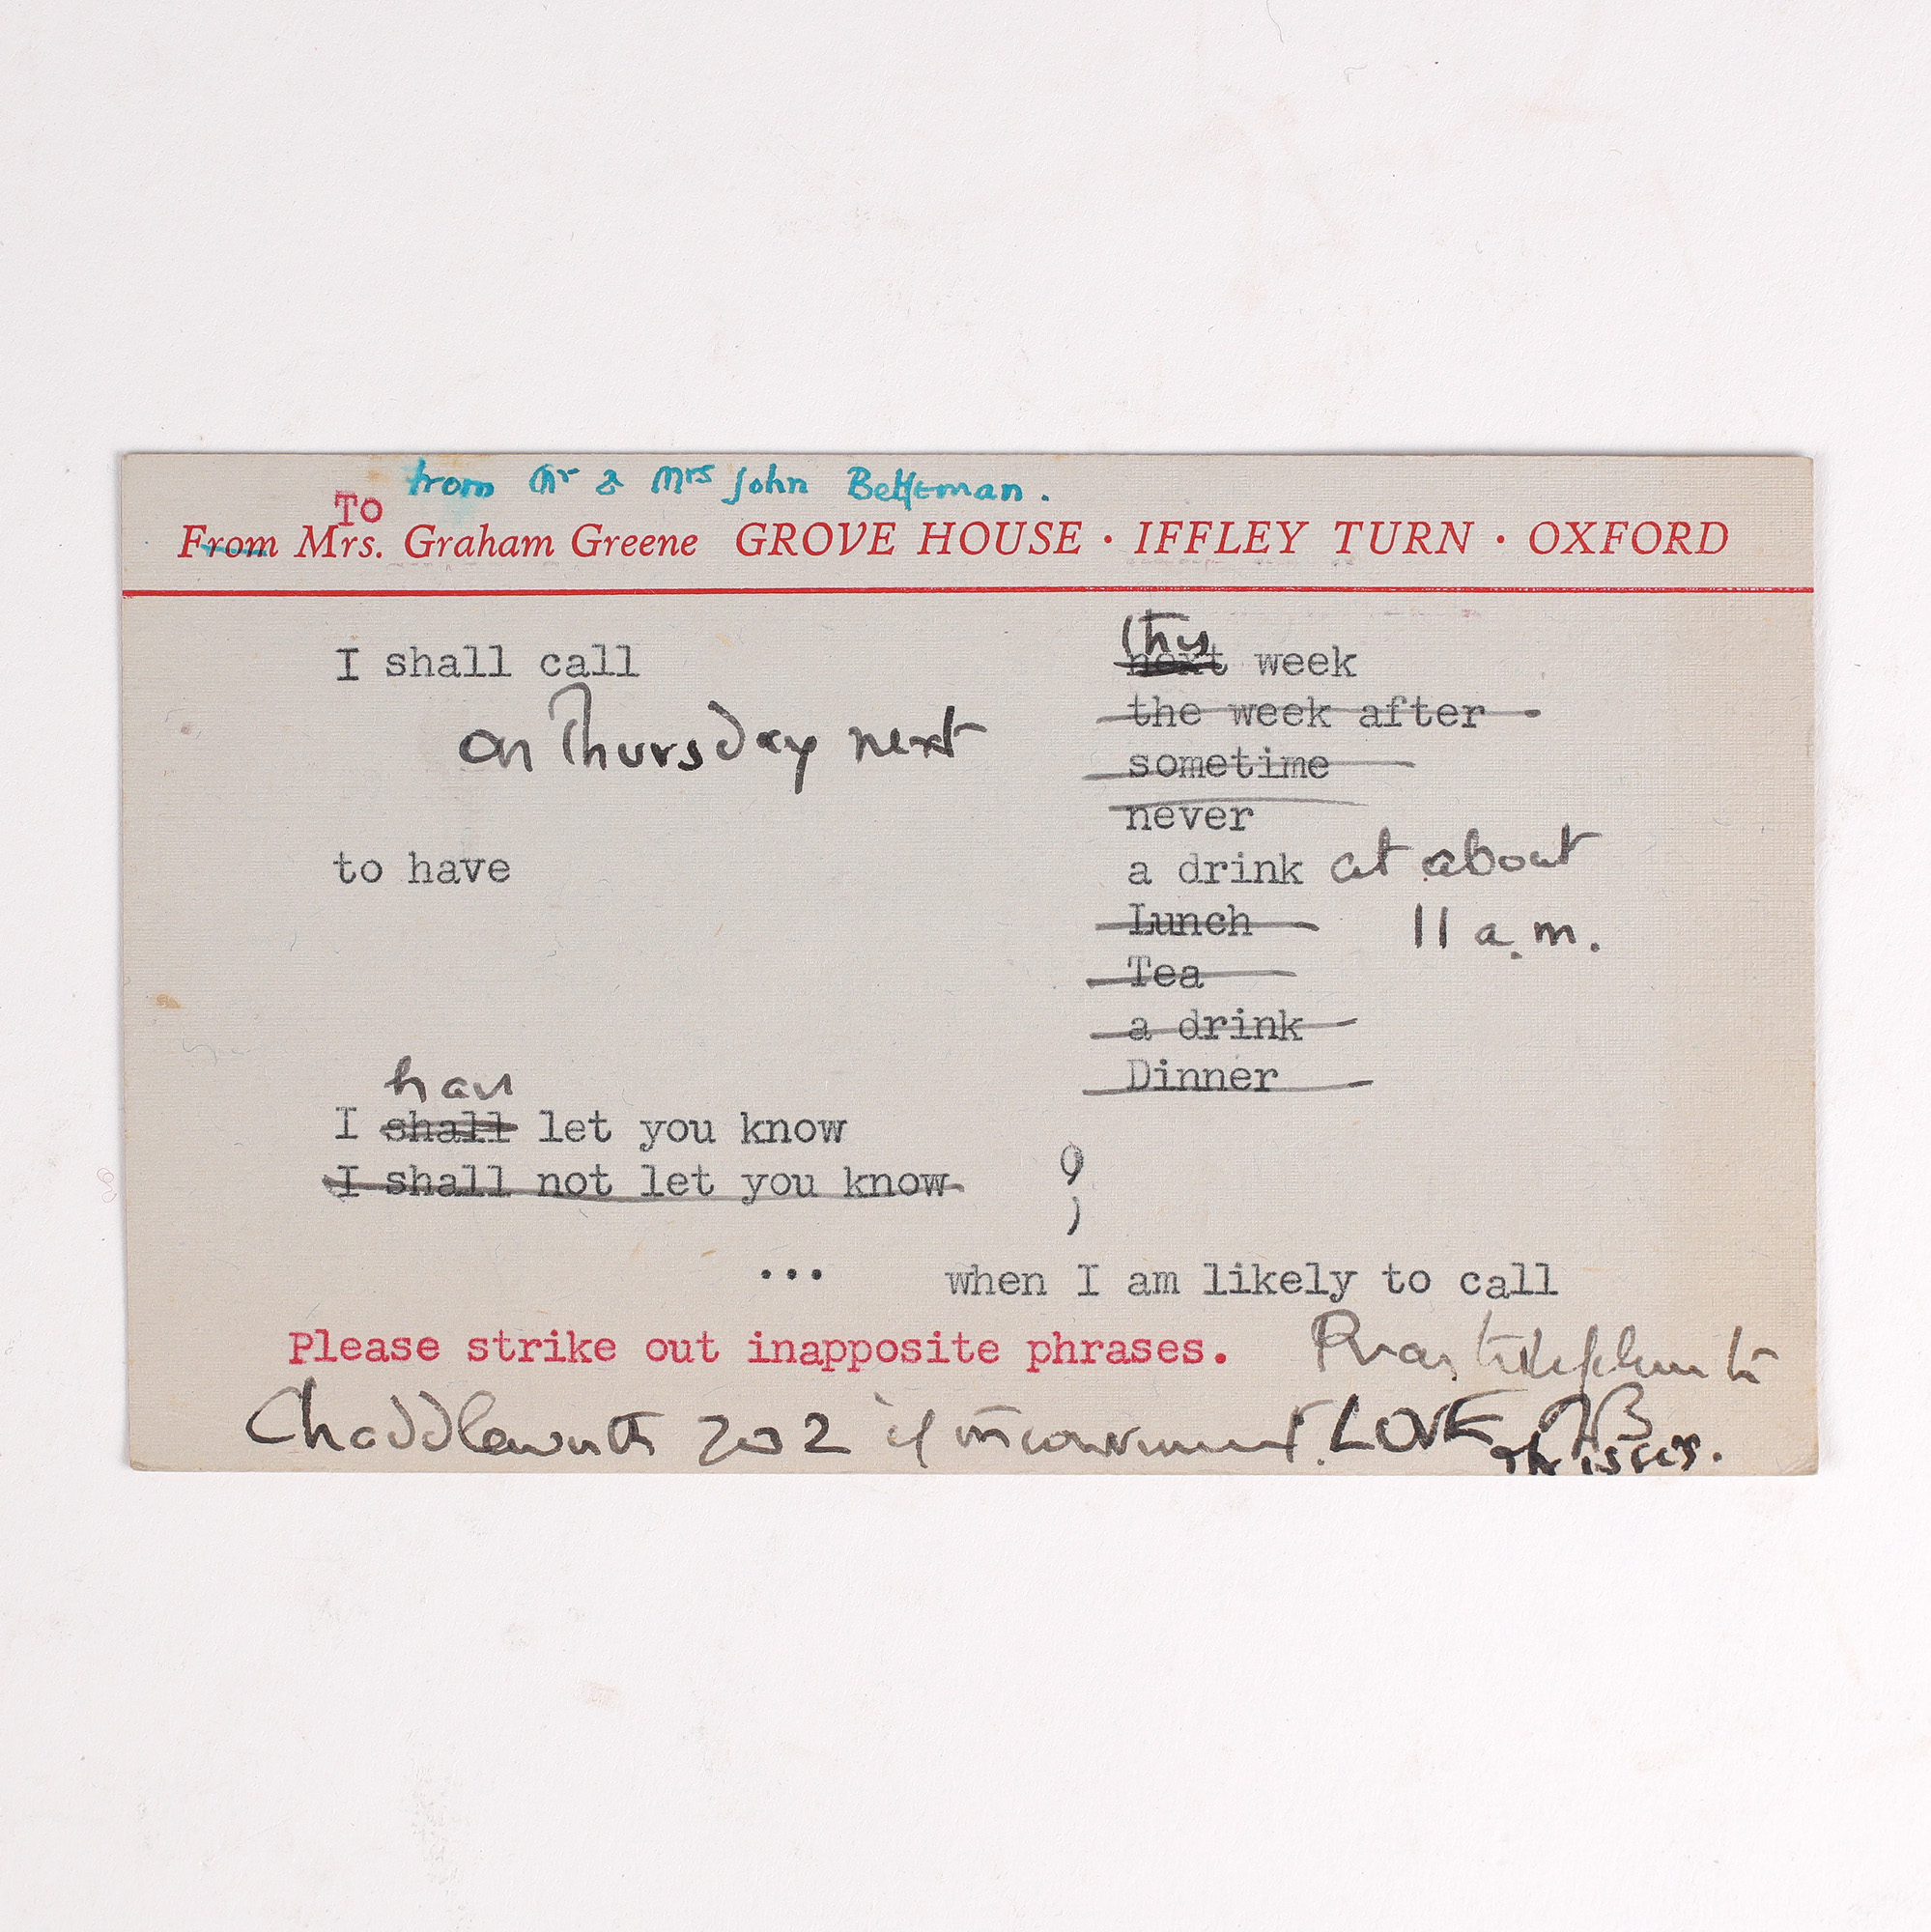 from Mr & Mrs John Betjeman.
To
From Mrs. Graham Greene GROVE HOUSE · IFFLEY TURN · OXFORD
this
I shall call next week
the week after
on Thursday next
sometime
never
to have a drink at about
Lunch 11 a.m.
Tea
a drink
Dinner
have
I shall let you know
I shall not let you know
... when I am likely to call
Please strike out inapposite phrases. Please telephone to
Chaddleworth 202 if inconvenient. LOVE